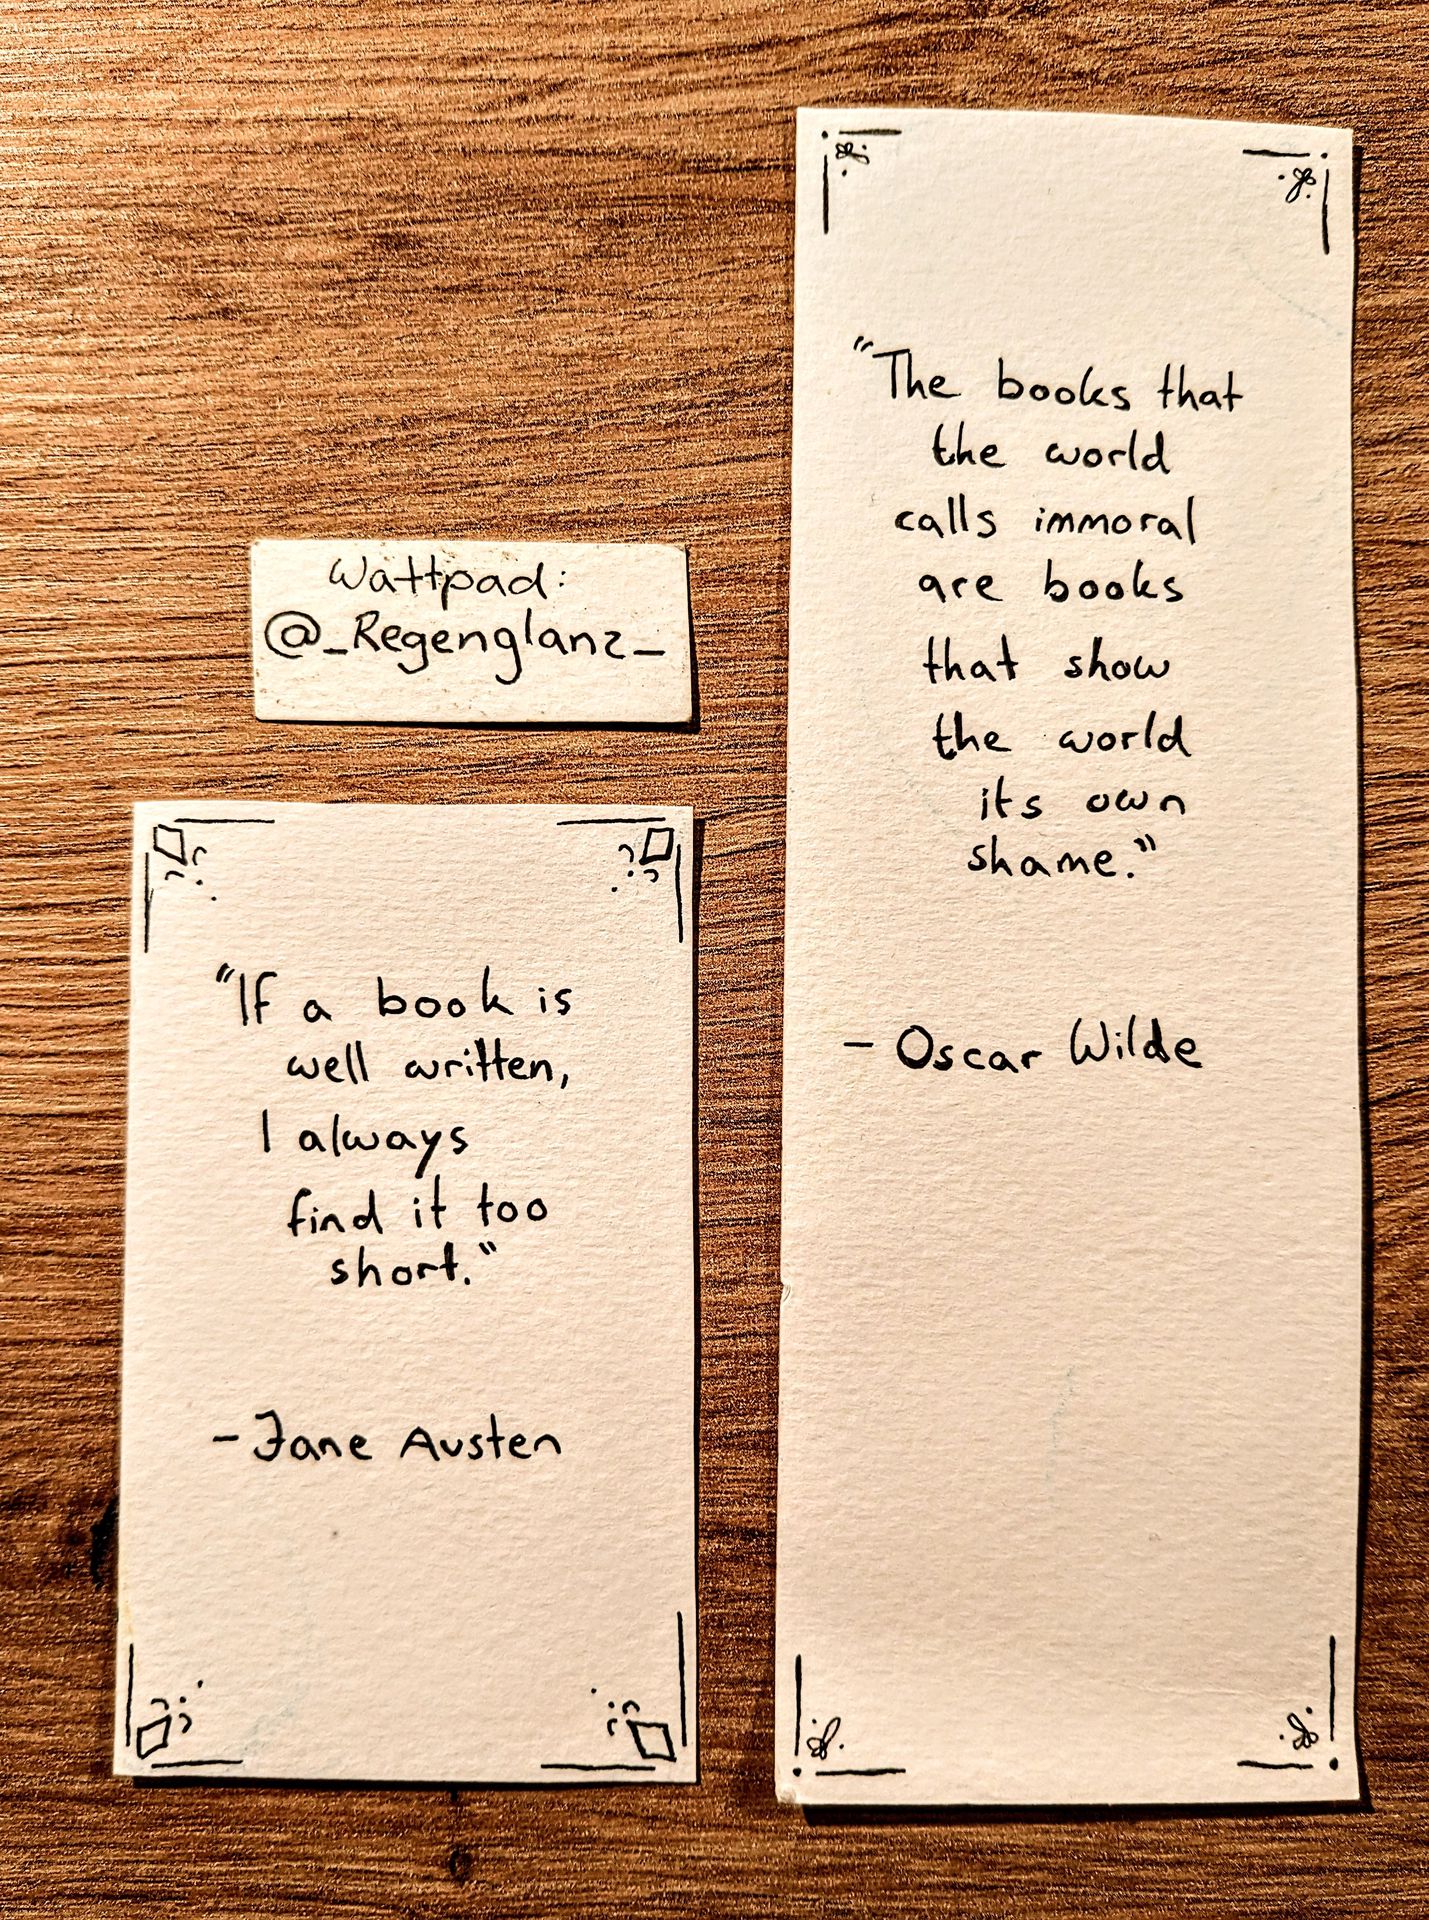 Wattpad:
@_Regenglanz_
"If a book is
well written,
I always
find it too
short."
- Jane Austen
"The books that
the world
calls immoral
are books
that show
the world
its own
shame."
- Oscar Wilde